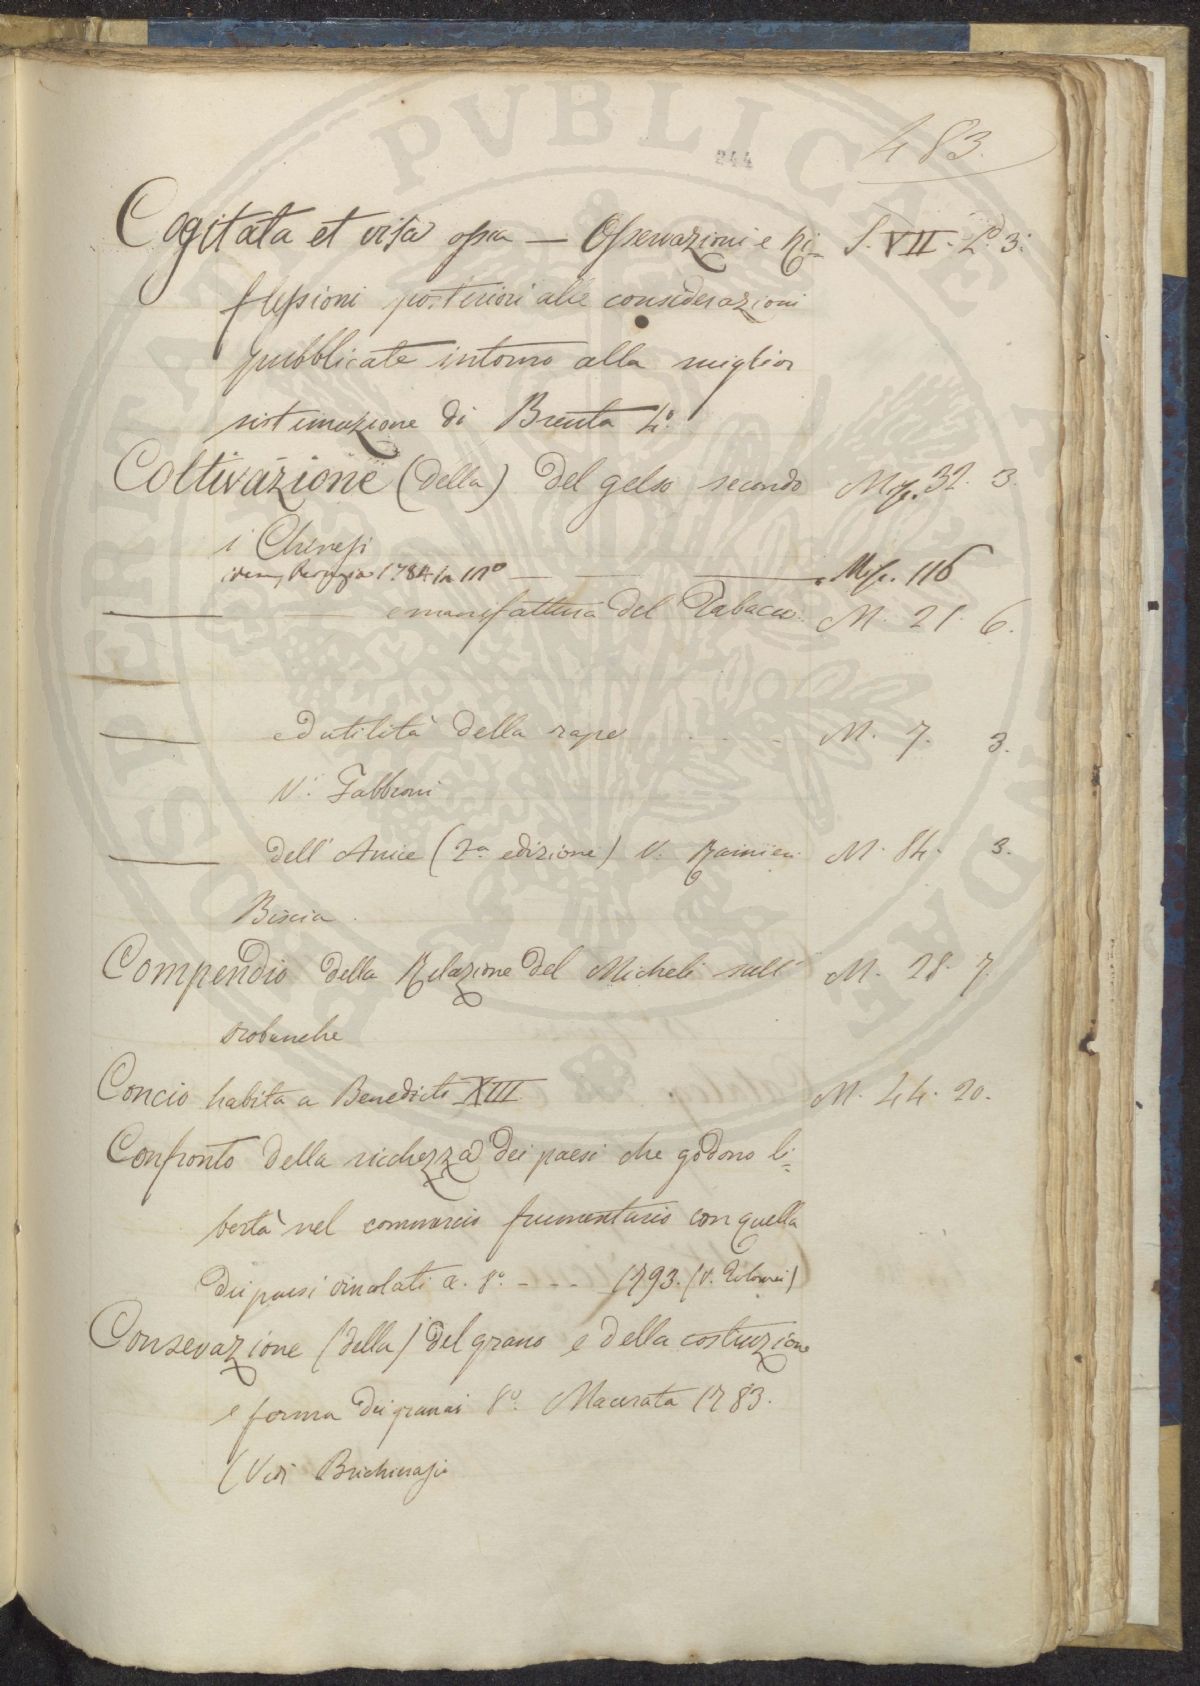 244
483.
Cogitata et visa ossia — Osservazioni e Ri= S. VII. L.d 3.
flessioni posteriori alle considerazioni
pubblicate intorno alla miglior
sistimazione di Brenta 4.o
Coltivazione (della) del gelso secondo Misc. 32. 3.
i Chinesi
idem, Perugia 1784 in 12o — — — Misc. 116
— — e manifattura del Tabacco. M. 21. 6.
— ed utilità della rape . . . . M. 7. 3.
V. Fabbroni
— dell'Anice (2.a edizione) V. Rainieri M. 84. 3.
Biscia
Compendio della Relazione del Micheli sull' M. 28. 7.
orobanche
Concio habita a Benedicto XIII M. 44. 20.
Confronto della ricchezza dei paesi che godono li=
bertà nel commercio frumentario con quella
dei paesi vincolati a. 8.o - - - - 1793. (V.
Consevazione (della) del grano e della costruzione
e forma dei granai 8.o Macerata 1783.
(Vedi